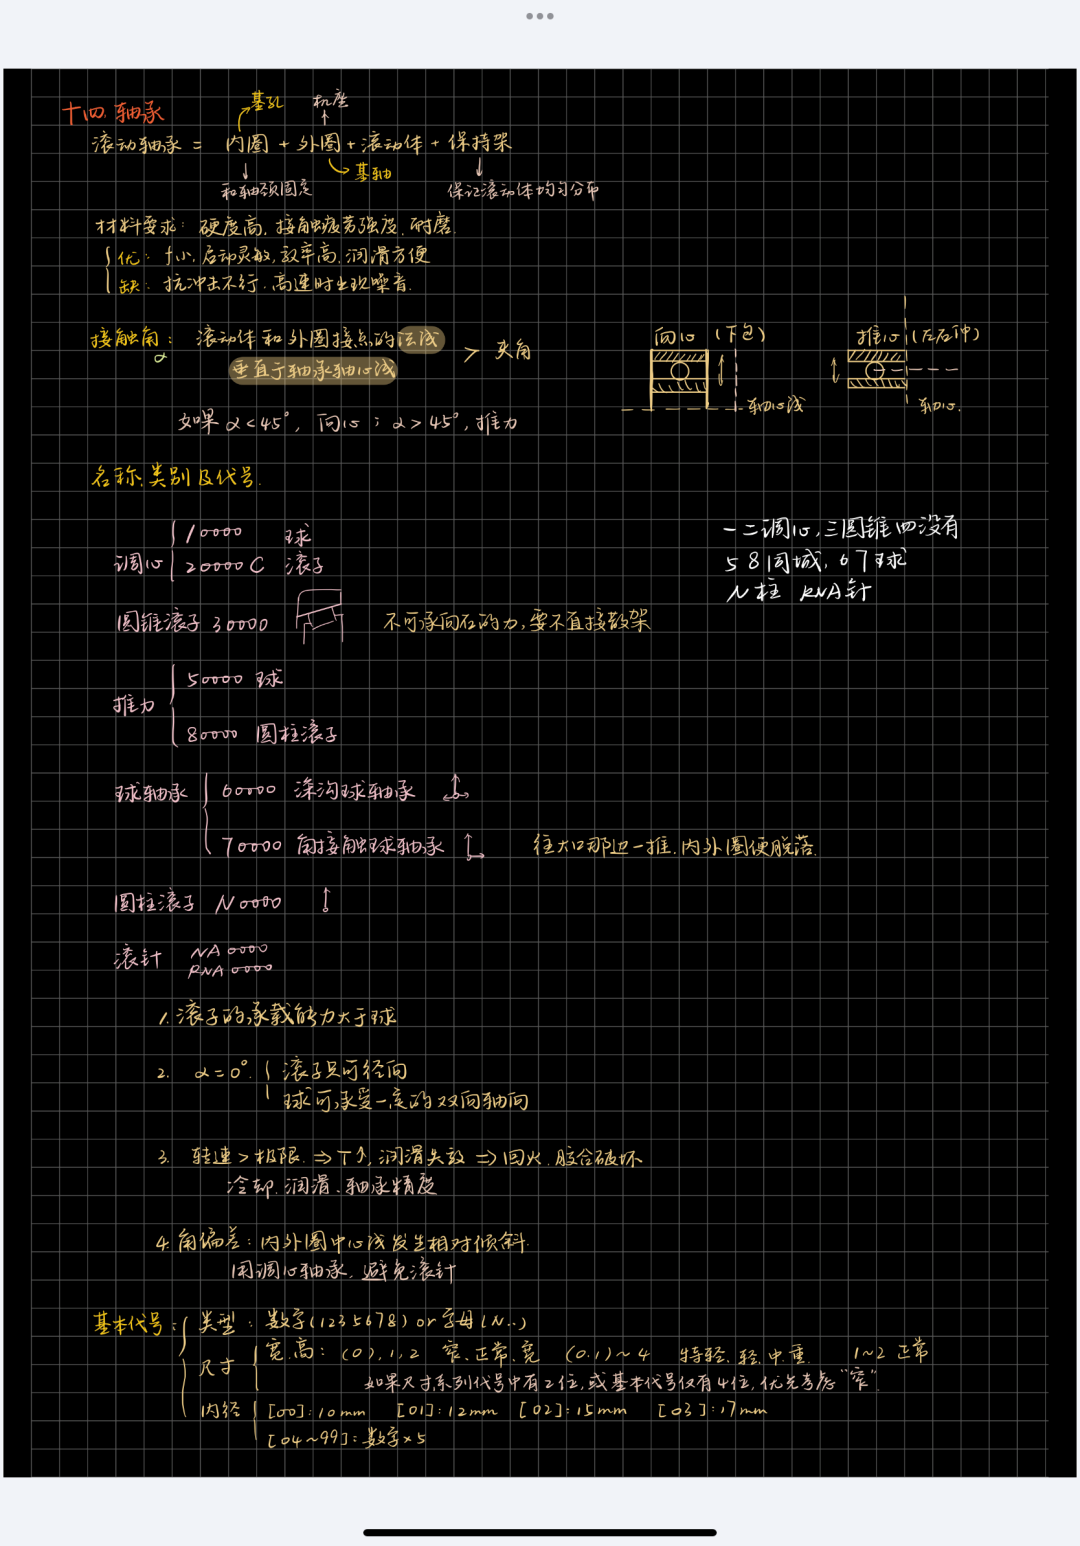 十四.轴承
基孔 机座
滚动轴承 = 内圈 + 外圈 + 滚动体 + 保持架
基轴
和轴颈固定 保证滚动体均匀分布
材料要求: 硬度高, 接触疲劳强度, 耐磨.
优: f小, 启动灵敏, 效率高, 润滑方便
缺: 抗冲击不行. 高速时出现噪音.
接触角: 滚动体和外圈接点的法线
α
垂直于轴承轴心线 > 夹角
向心 (下包) 推心 (左右钟)
轴心线 轴心.
如果 α<45°, 向心; α>45°, 推力
名称, 类别及代号.
一二调心, 三圆锥四没有
58同城, 67球
N柱 RNA针
调心 10000 球
20000C 滚子
圆锥滚子 30000 不可承向右的力, 要不直接散架
推力 50000 球
80000 圆柱滚子
球轴承 60000 深沟球轴承
70000 角接触球轴承 往大口那边一推, 内外圈便脱落.
圆柱滚子 N0000
滚针 NA0000
RNA0000
1. 滚子的承载能力大于球
2. α=0°. 滚子只可径向
球可承受一定的双向轴向
3. 转速>极限. ⇒T↑, 润滑失效 ⇒回火. 胶合破坏
冷却. 润滑. 轴承精度
4. 角偏差: 内外圈中心线发生相对倾斜.
用调心轴承, 避免滚针
基本代号: 类型: 数字(1235678) or 字母(N..)
尺寸 宽.高: (0),1,2 窄、正常、宽 (0.1)~4 特轻. 轻. 中. 重. 1~2 正常
如果尺寸系列代号中有2位, 或基本代号仅有4位, 优先考虑"窄"
内径 [00]:10mm [01]:12mm [02]:15mm [03]:17mm
[04~99]: 数字×5